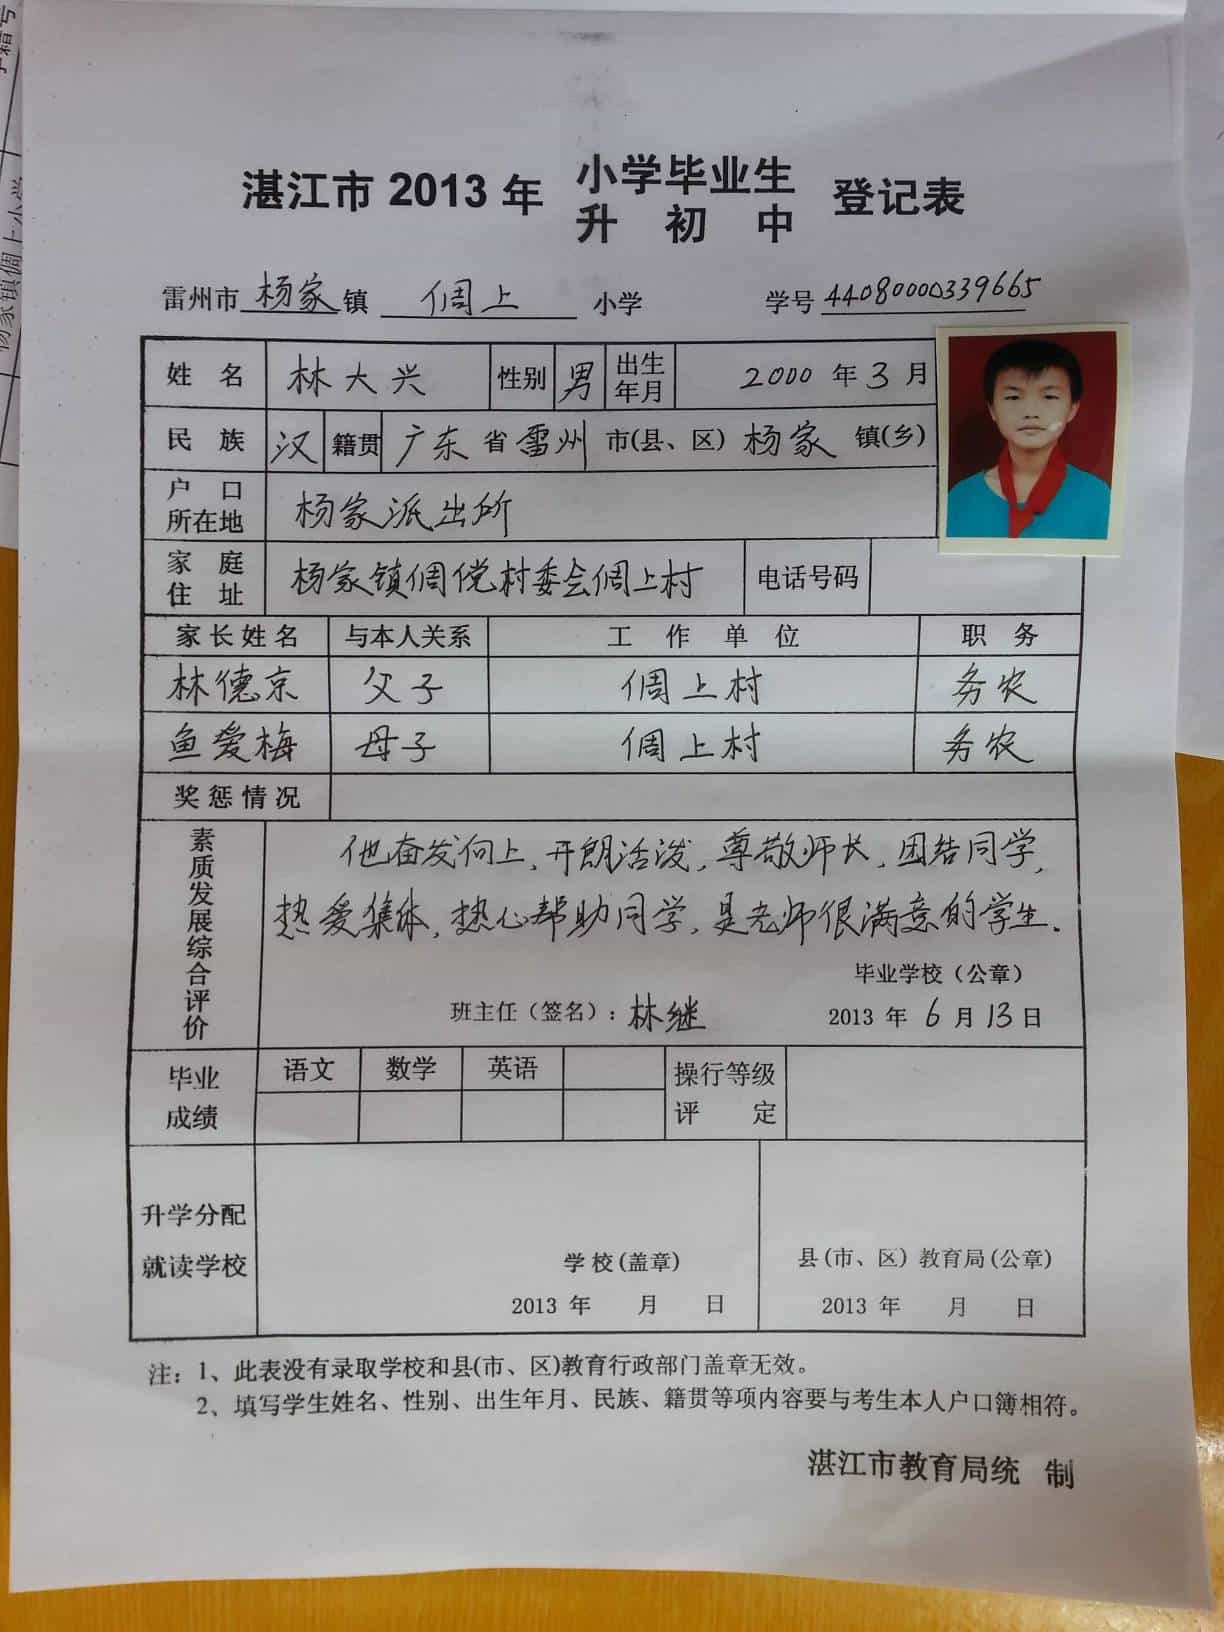 湛江市 2013 年 小学毕业生 登记表
升 初 中
雷州市 杨家 镇 倜上 小学 学号 44080000339665
姓 名 林大兴 性别 男 出生年月 2000 年 3 月
民 族 汉 籍贯 广东 省 雷州 市(县、区) 杨家 镇(乡)
户 口 所在地 杨家派出所
家 庭 住 址 杨家镇倜傥村委会倜上村 电话号码
家长姓名 与本人关系 工 作 单 位 职 务
林德京 父子 倜上村 务农
鱼爱梅 母子 倜上村 务农
奖惩情况
素质发展综合评价
他奋发向上,开朗活泼,尊敬师长,团结同学,
热爱集体,热心帮助同学,是老师很满意的学生.
毕业学校(公章)
班主任(签名):林继 2013 年 6 月 13 日
毕业成绩 语文 数学 英语 操行等级评 定
升学分配
就读学校
学校(盖章) 县(市、区)教育局(公章)
2013 年 月 日 2013 年 月 日
注:1、此表没有录取学校和县(市、区)教育行政部门盖章无效。
2、填写学生姓名、性别、出生年月、民族、籍贯等项内容要与考生本人户口簿相符。
湛江市教育局统 制